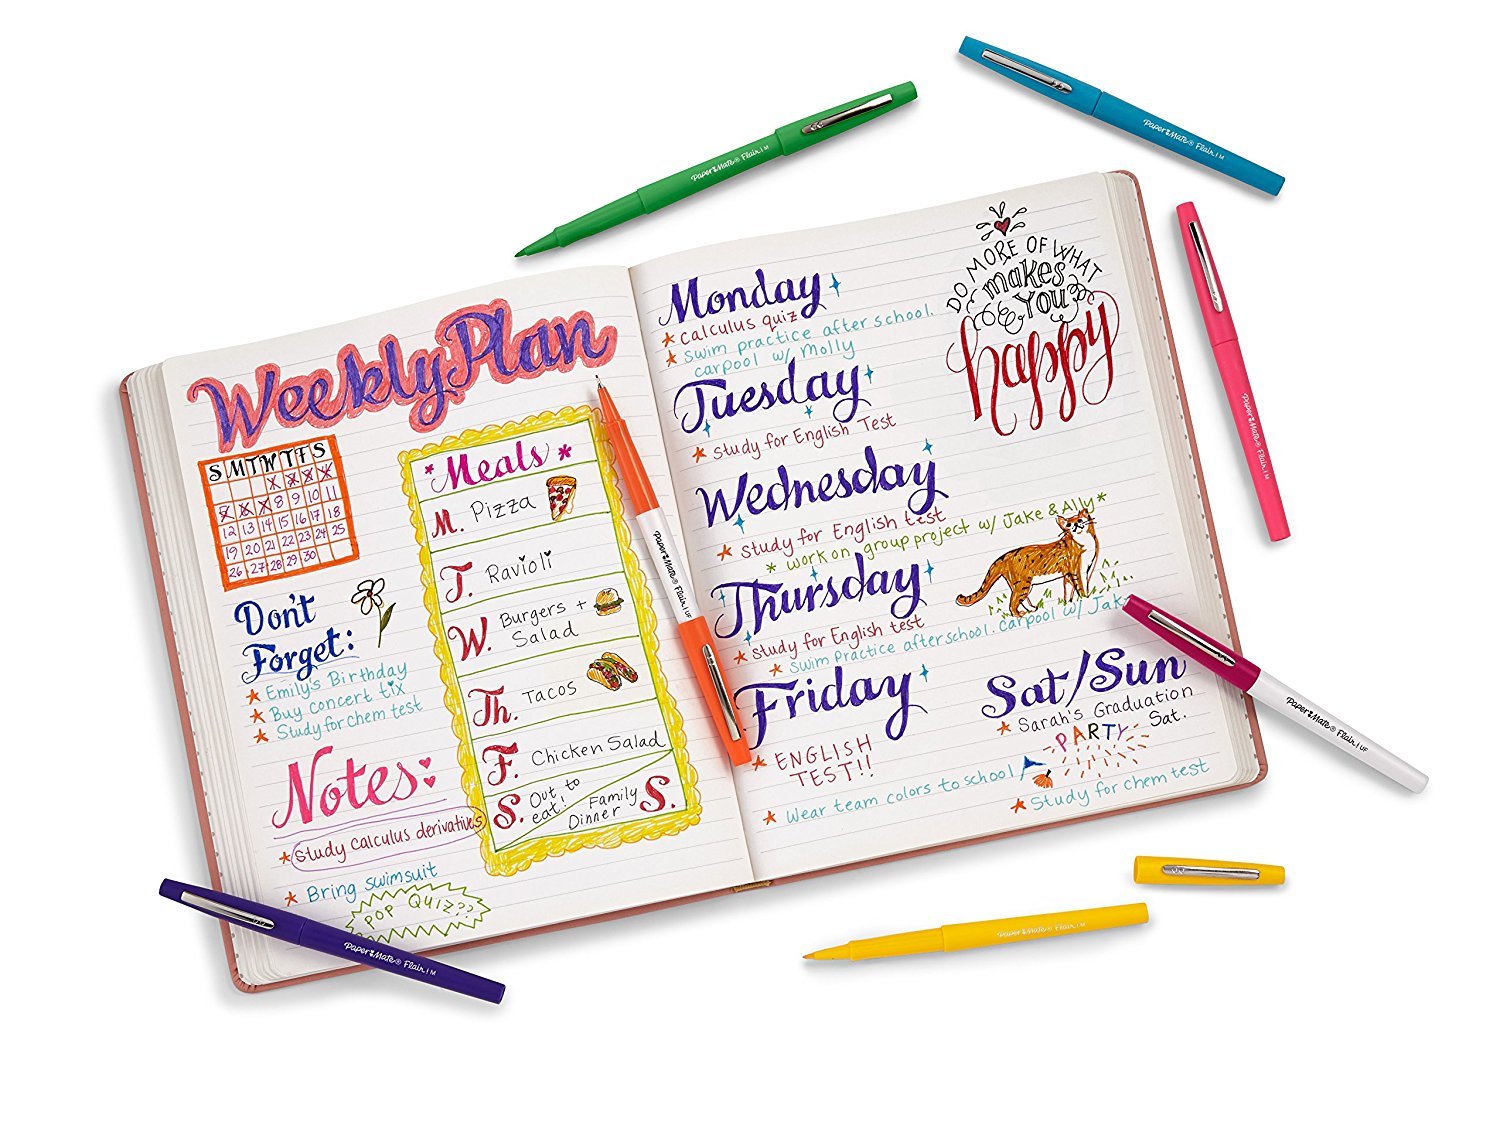 Weekly Plan
S M T W T F S
X X X X
X X X 8 9 10 11
12 13 14 15 16 17 18
19 20 21 22 23 24 25
26 27 28 29 30
Don't
Forget:
Emily's Birthday
Buy concert tix
Study for chem test
Notes:
Study calculus derivatives
Bring swimsuit
POP QUIZ??
*Meals*
M. Pizza
T. Ravioli
W. Burgers +
Salad
Th. Tacos
F. Chicken Salad
S. Out to
eat!
Family
Dinner S.
Monday
calculus quiz
swim practice after school.
carpool w/ Molly
Tuesday
Study for English Test
Wednesday
Study for English test
* work on group project w/ Jake & Ally*
Thursday
Study for English test
Swim Practice after school. carpool w/ Jake
Friday
ENGLISH
TEST!!
Wear team colors to school
DO MORE OF WHAT
makes
YOU
happy
Sat/Sun
Sarah's Graduation
PARTY Sat.
Study for chem test
Paper Mate® Flair. | M
Paper Mate® Flair. | M
Paper Mate® Flair. | M
Paper Mate® Flair. | UF
Paper Mate® Flair. | UF
Paper Mate® Flair. | M
Paper Mate® Flair. | M